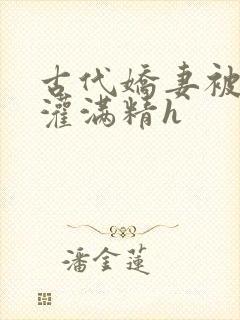 古代嬌妻被
灌滿精h
潘金蓮